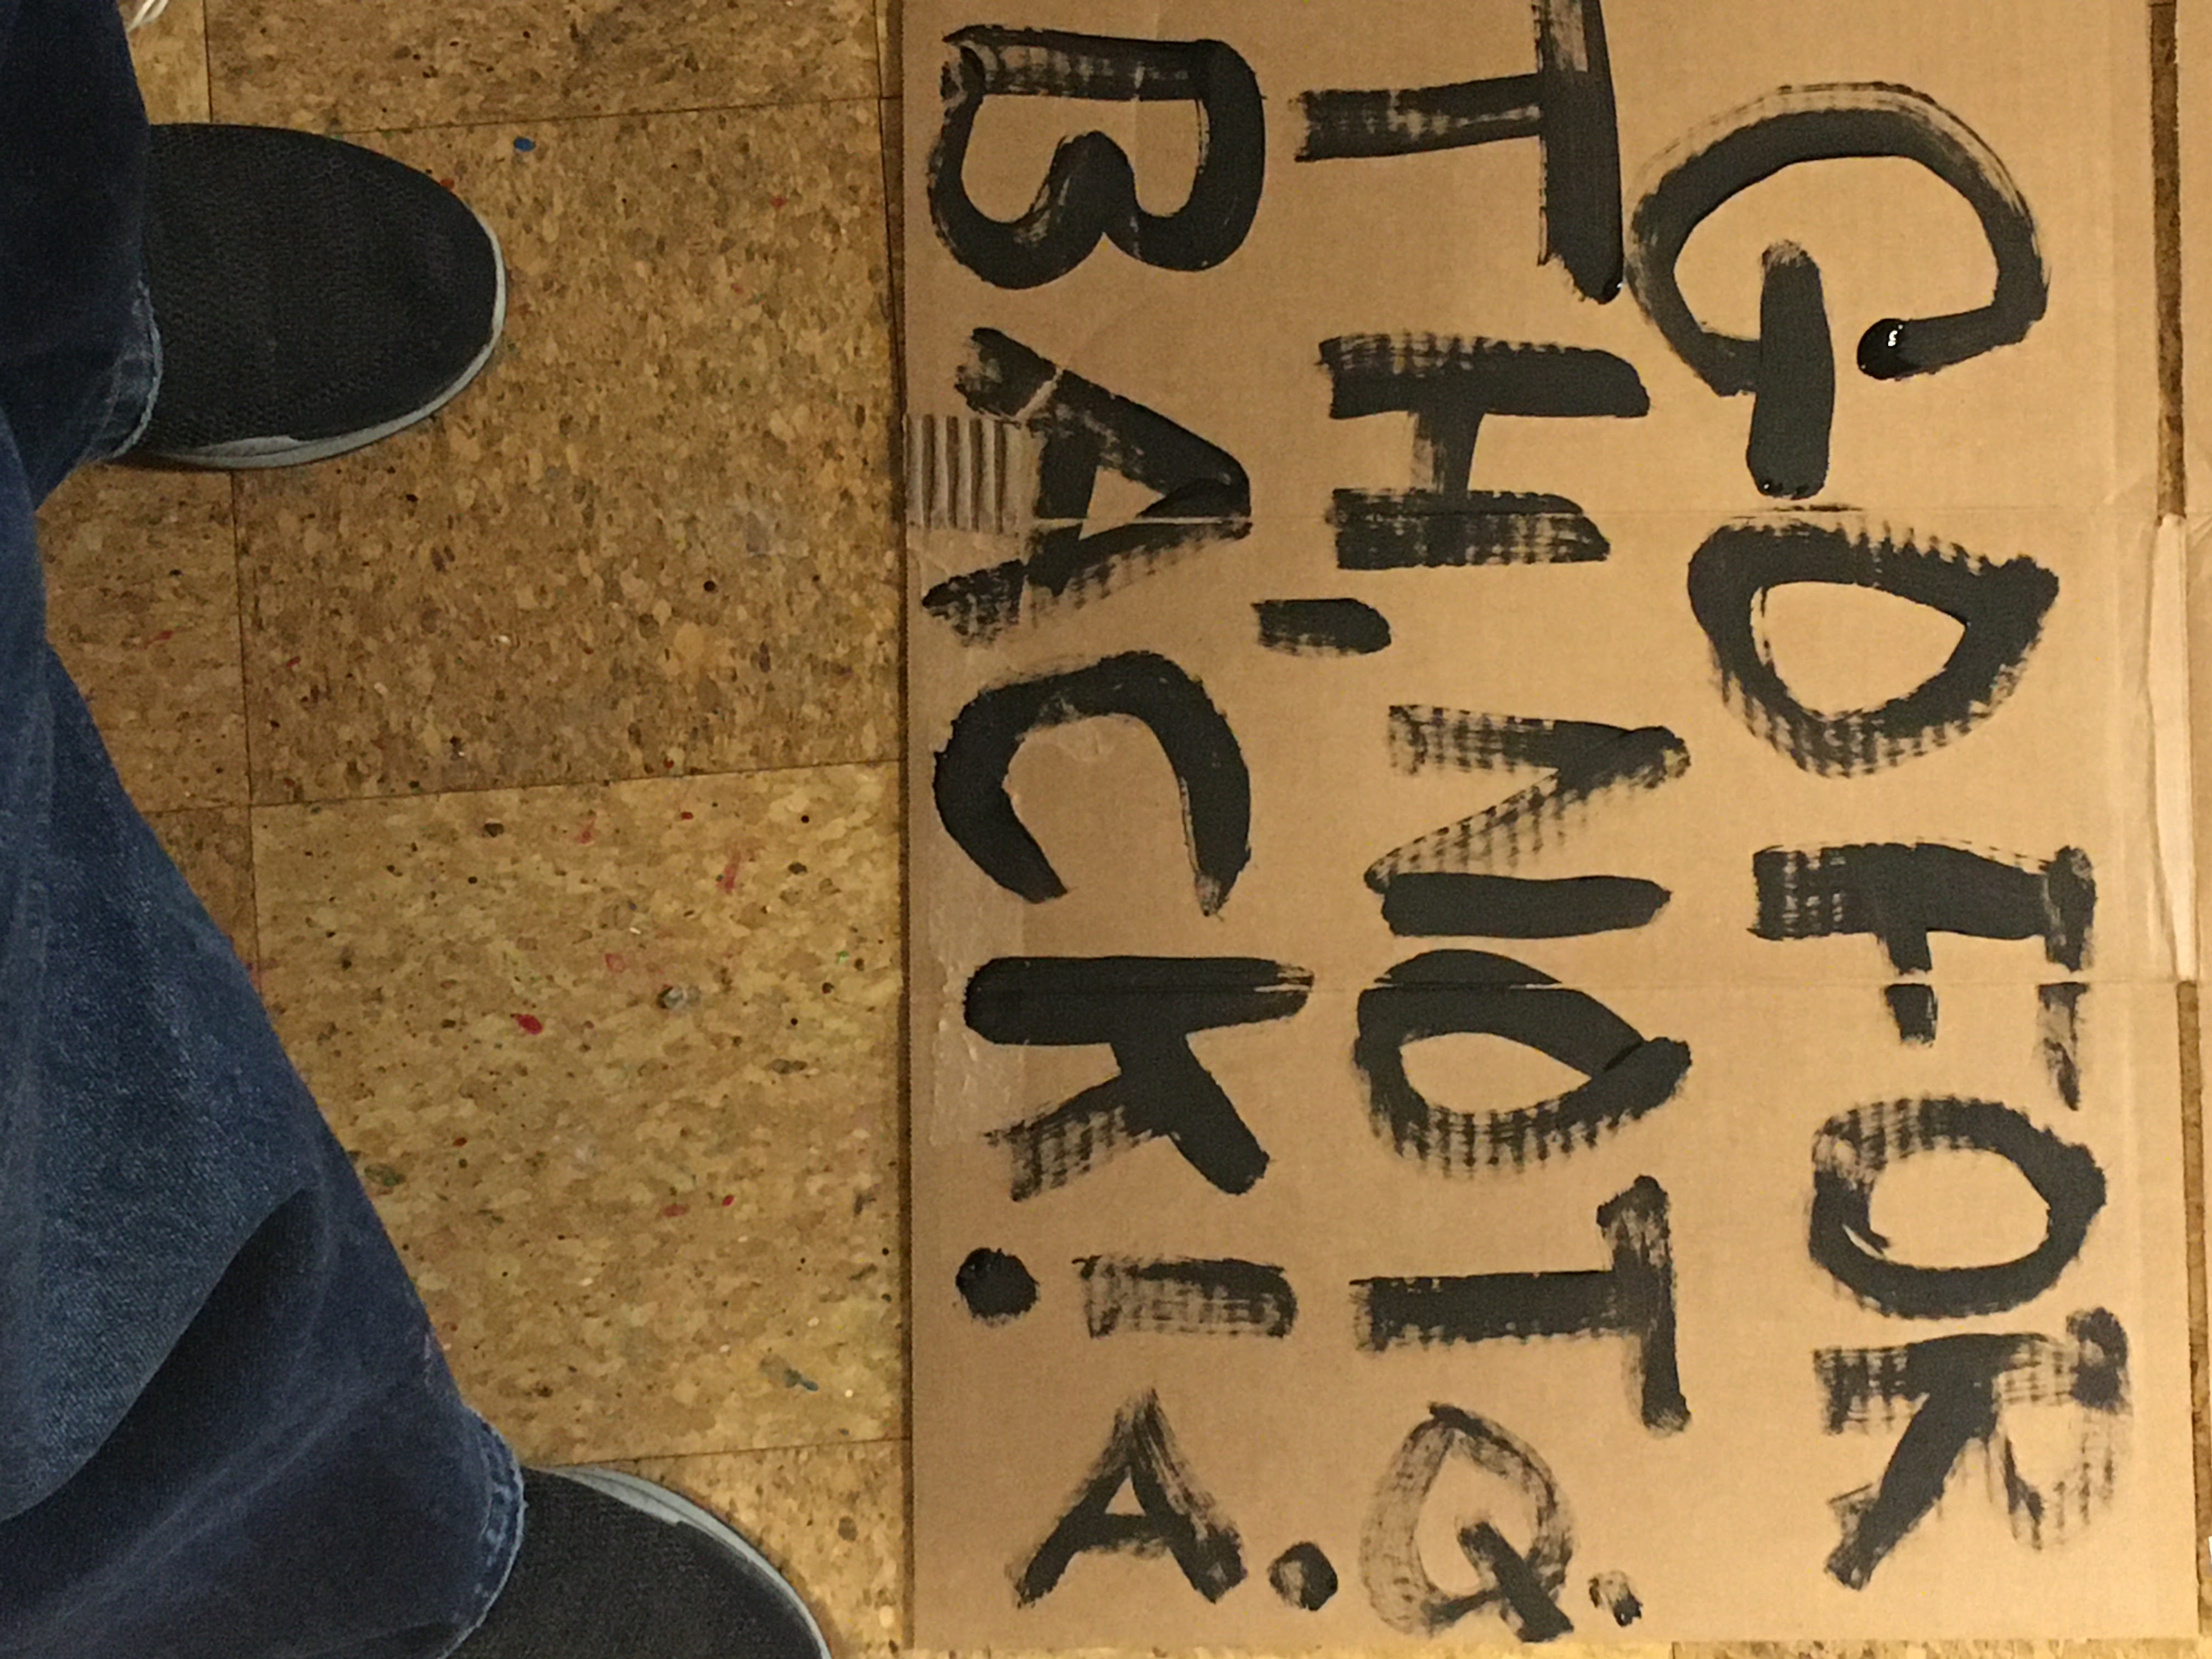 GO FOR
TH, NOT Q.
BACK! A.